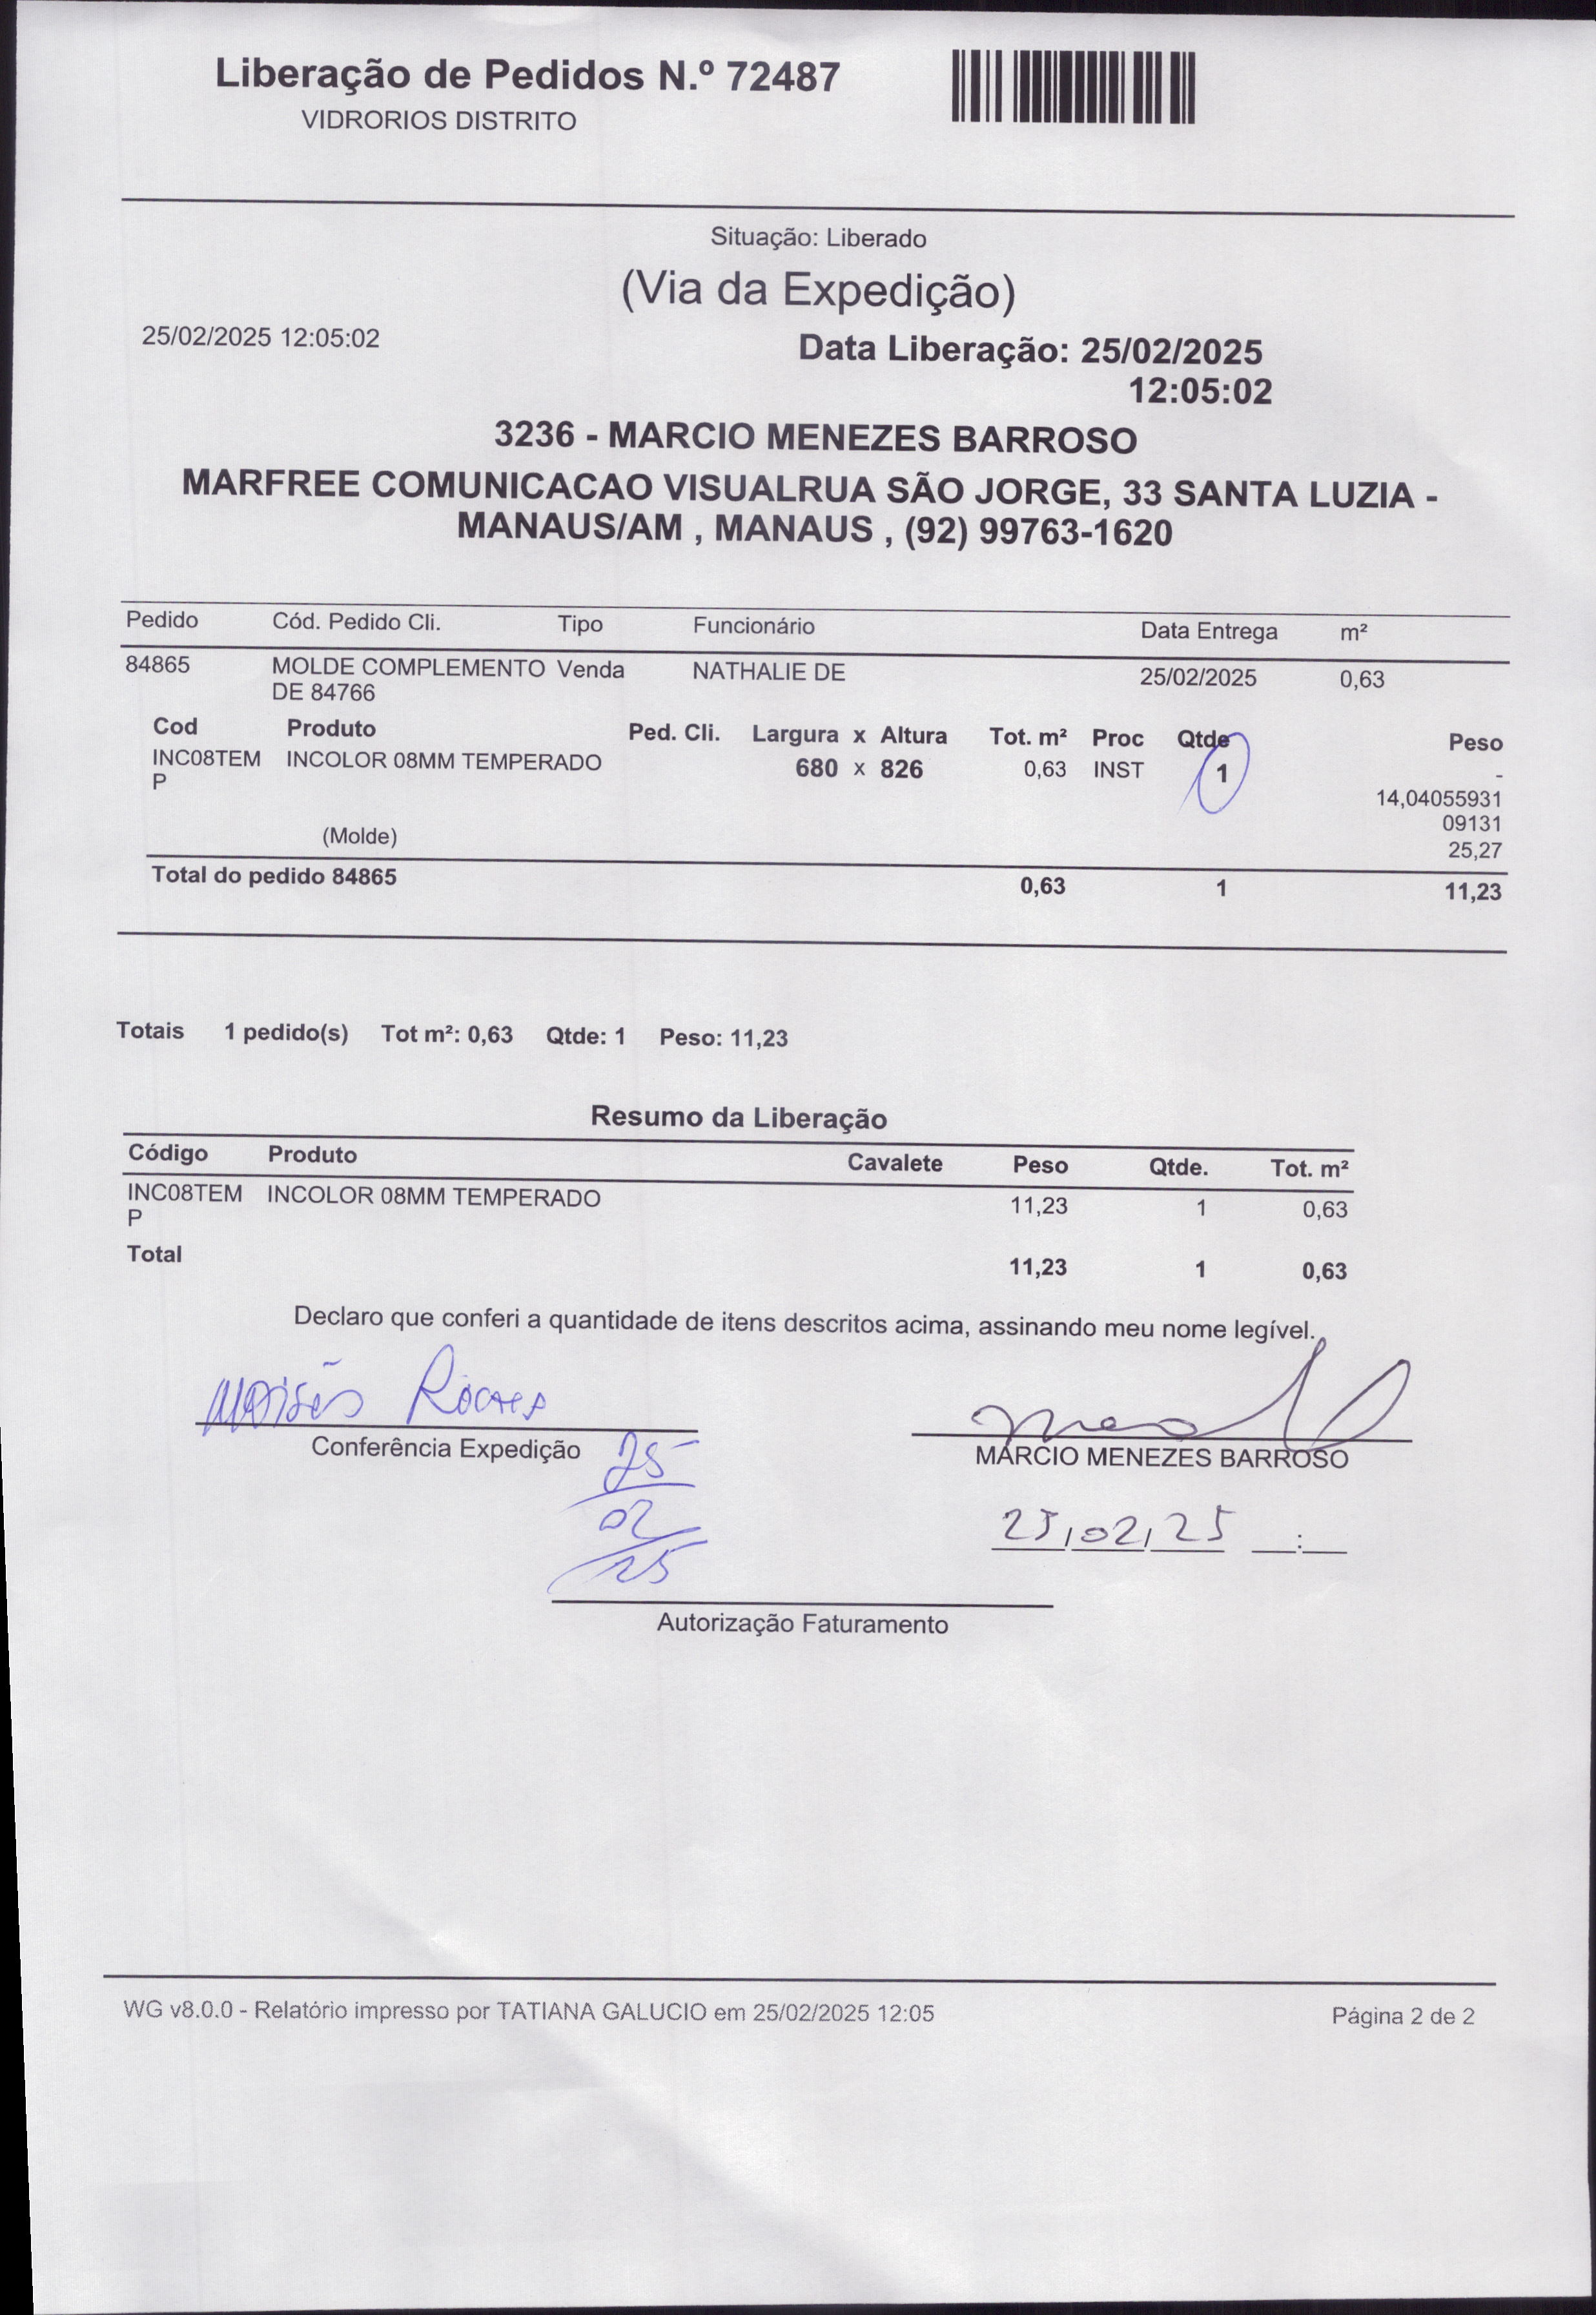 Liberação de Pedidos N.º 72487
VIDRORIOS DISTRITO
Situação: Liberado
(Via da Expedição)
25/02/2025 12:05:02
Data Liberação: 25/02/2025
12:05:02
3236 - MARCIO MENEZES BARROSO
MARFREE COMUNICACAO VISUALRUA SÃO JORGE, 33 SANTA LUZIA -
MANAUS/AM , MANAUS , (92) 99763-1620
Pedido Cód. Pedido Cli. Tipo Funcionário Data Entrega m²
84865 MOLDE COMPLEMENTO Venda NATHALIE DE 25/02/2025 0,63
DE 84766
Cod Produto Ped. Cli. Largura x Altura Tot. m² Proc Qtde Peso
INC08TEM INCOLOR 08MM TEMPERADO 680 x 826 0,63 INST 1 -
P 14,04055931
09131
(Molde) 25,27
Total do pedido 84865 0,63 1 11,23
Totais 1 pedido(s) Tot m²: 0,63 Qtde: 1 Peso: 11,23
Resumo da Liberação
Código Produto Cavalete Peso Qtde. Tot. m²
INC08TEM INCOLOR 08MM TEMPERADO 11,23 1 0,63
P
Total 11,23 1 0,63
Declaro que conferi a quantidade de itens descritos acima, assinando meu nome legível.
Moisés
Conferência Expedição
25
02
25
MARCIO MENEZES BARROSO
25/02/25 __:__
Autorização Faturamento
WG v8.0.0 - Relatório impresso por TATIANA GALUCIO em 25/02/2025 12:05
Página 2 de 2